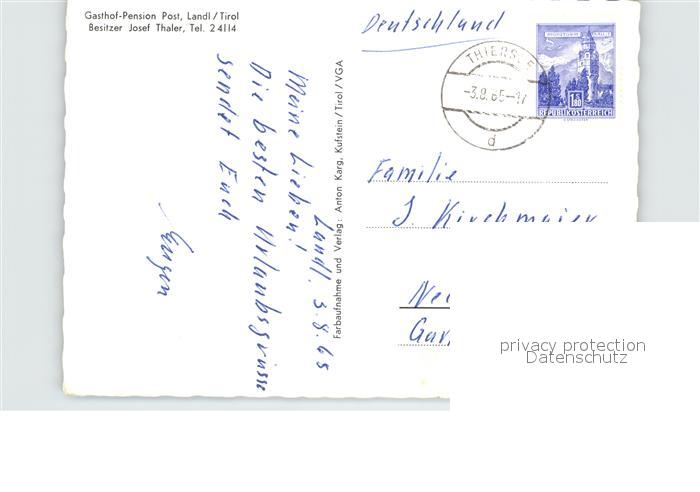 Gasthof-Pension Post, Landl / Tirol
Besitzer Josef Thaler, Tel. 2 41 14
Landl, 3.8.65
Meine Lieben!
Die besten Urlaubsgrüsse
sendet Euch
Farbaufnahme und Verlag: Anton Karg, Kufstein / Tirol / VGA
Deutschland
THIERSEE
-3.8.65-17
d
MÜNZTURM HALL I.T.
1.80
REPUBLIK ÖSTERREICH
Familie
J. Kirchmaier
privacy protection
Datenschutz